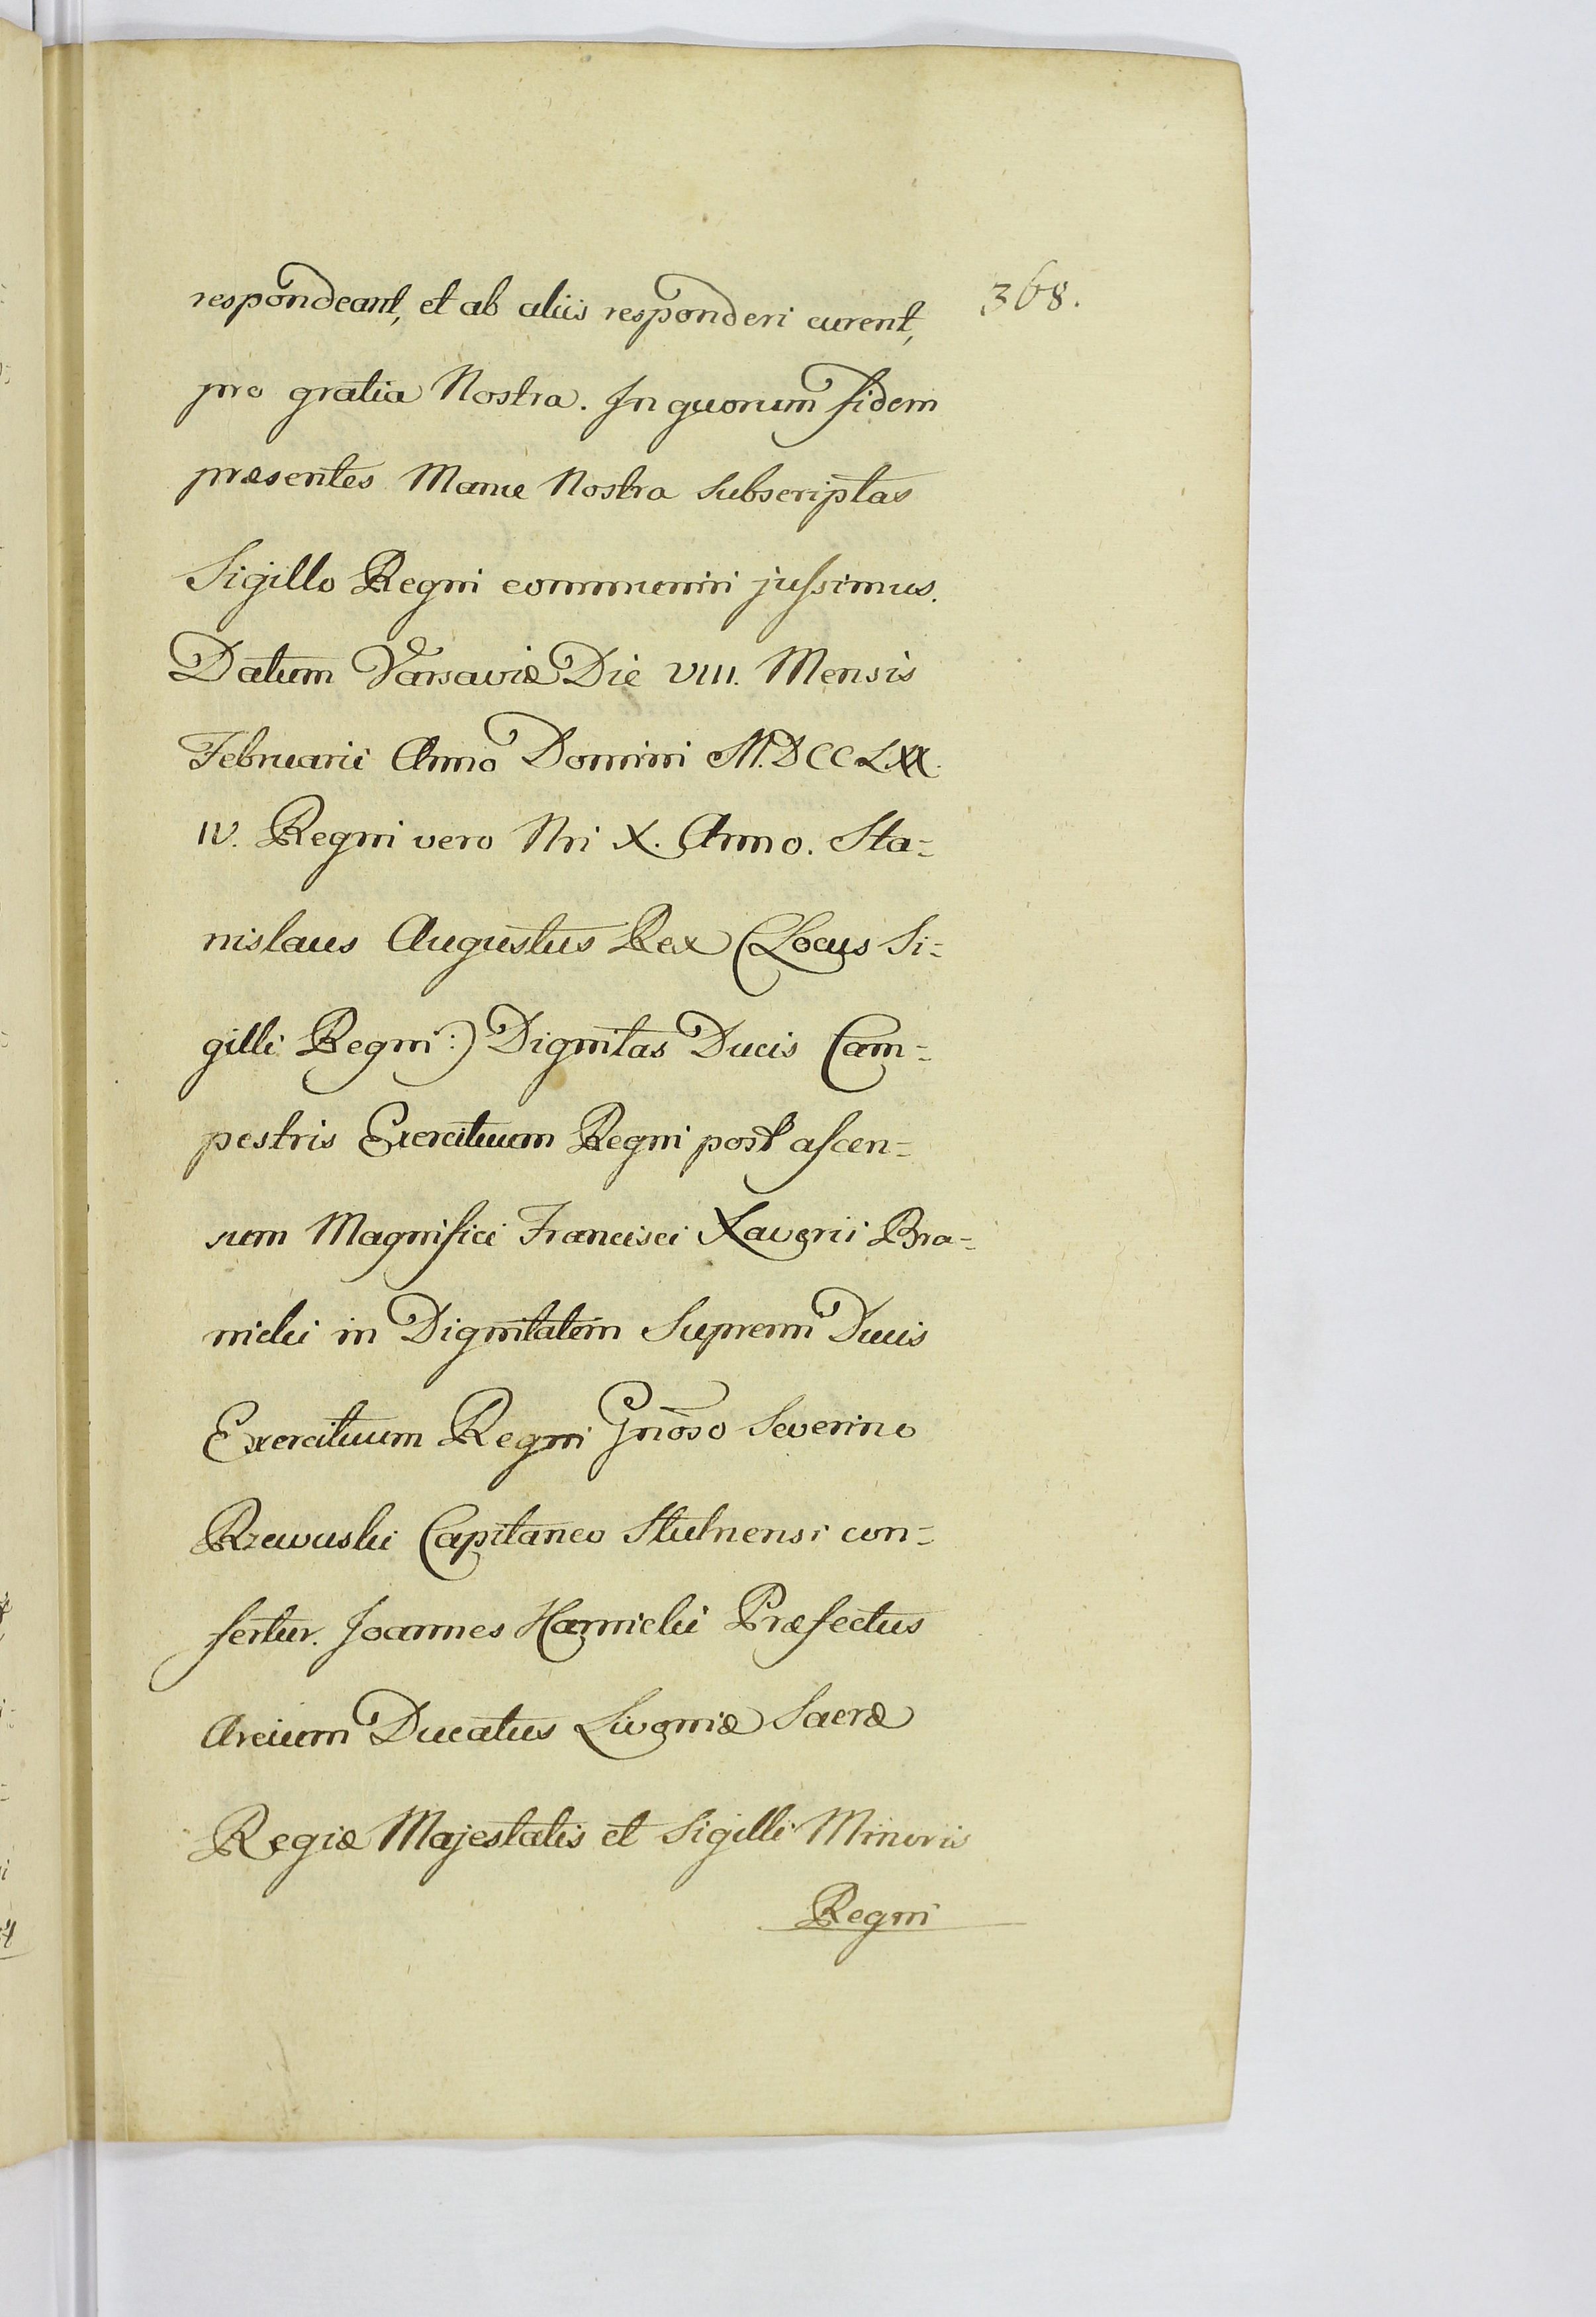 368.
respondeant, et ab aliis responderi curent,
pro gratia Nostra. In quorum fidem
præsentes Manu Nostra subscriptas
Sigillo Regni communiri jussimus.
Datum Varsaviæ Die VIII. Mensis
Februarii Anno Domini M.DCCLXX.
IV. Regni vero Nri X. Anno. Sta=
nislaus Augustus Rex (Locus Si=
gilli Regni:) Dignitas Ducis Cam=
pestris Exercituum Regni post ascen=
sum Magnifici Francisci Xaverii Bra=
nicki in Dignitatem Supremi Ducis
Exercituum Regni Gnõso Severino
Rzewuski Capitaneo Stulnensi con=
fertur. Joannes Harnicki Præfectus
Arcium Ducatus Livoniæ Sacræ
Regiæ Majestatis et Sigilli Minoris
Regni